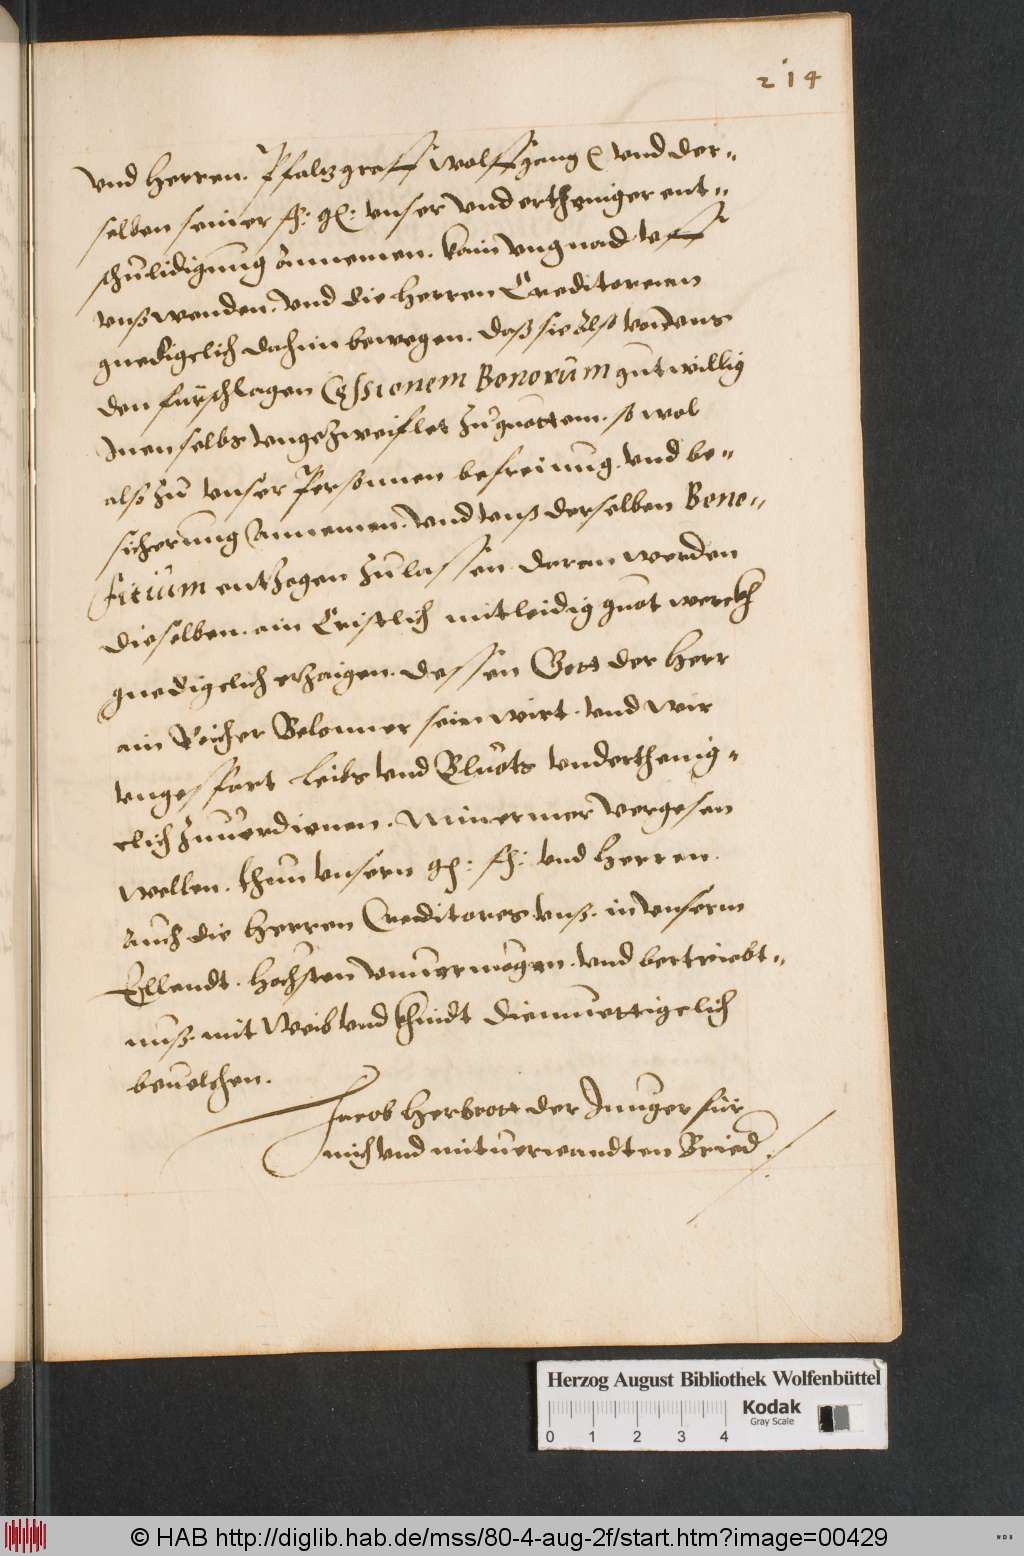 214
Und Herren. Pfaltzgraff Wolffgang &c. Und der=
selben seiner fh: gh: Unser Underthöniger ent=
schuldigung Annemen. kain Ungnad Uff
Unß wenden. Und die Herren Creditoren
gnedigclich dahin bewegen. daß sie Alß von Uns
den fürschlagen Cessionem Bonorum guttwillig
Inen selbs Ungezweiflet zu guottem. so wol
also zu Unser Personnen befreinung. Und be=
sicherung Annemen. Und Unß derselben Bene=
ficium entzogen zulassen daran werden
dieselben. ain Cristlich mitleidig guot werckh
gnedigclich erzaigen. dessen Gott der Herr
ain Reicher Belonner sein wirt. Und Wir
Ungesport Leibs Und Bluots Underthenig=
clich zuuerdienen. Nimermer Vergessen
Wellen. thun Unsern gh: fh: Und Herren.
Auch die Herren Creditores Unß. in Unserm
Ellendt. hochsten Unuermögen. Und bertriebt=
nuß. mit Weib Und khindt diemuettigclich
beuelchen.
Jacob Herbrott der Junger für
mich Und mituerwandten Bried.
Herzog August Bibliothek Wolfenbüttel
Kodak
Gray Scale
0 1 2 3 4
© HAB http://diglib.hab.de/mss/80-4-aug-2f/start.htm?image=00429